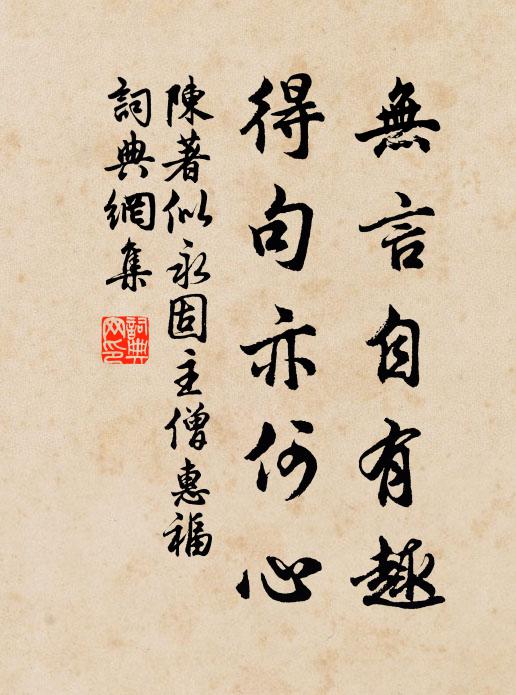 無言自有趣
得句亦何心
陳著似永固主僧惠福
詞典網集
詞典網印